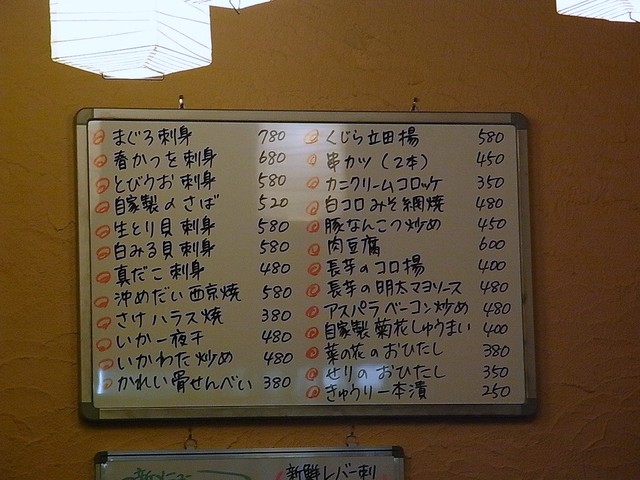 まぐろ刺身 780
春かつを刺身 680
とびうお刺身 580
自家製〆さば 520
生とり貝刺身 580
白みる貝刺身 580
真だこ刺身 480
沖めだい西京焼 580
さけハラス焼 380
いか一夜干 480
いかわた炒め 480
かれい骨せんべい 380
くじら立田揚 580
串カツ(2本) 450
カニクリームコロッケ 350
白コロみそ網焼 480
豚なんこつ炒め 450
肉豆腐 600
長芋のコロ揚 400
長芋の明太マヨソース 480
アスパラベーコン炒め 480
自家製菊花しゅうまい 400
菜の花のおひたし 380
せりのおひたし 350
きゅうり一本漬 250
新メニュー
新鮮レバー刺